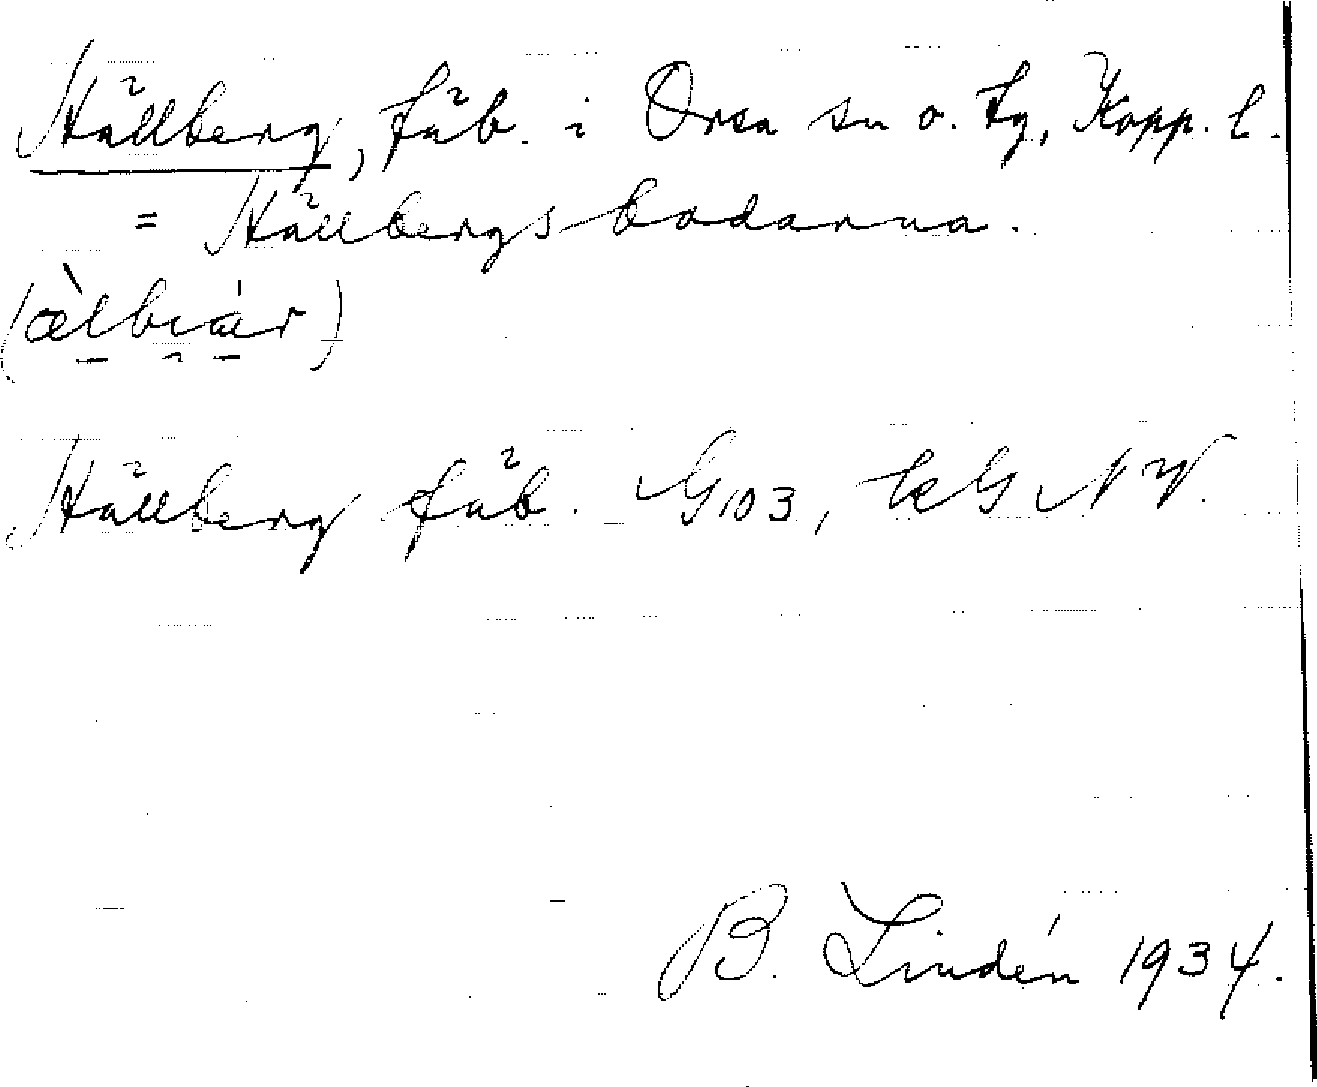 Hällberg, fäb. i Orsa sn o. tg, Kopp. l.
= Hällbergsbodarna.
(æ̀lbıár)
Hällberg fäb. G103, kG NV.
B. Lindén 1934.